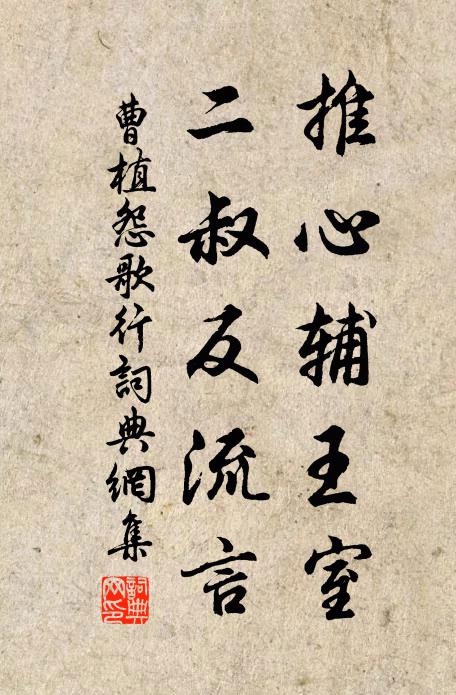 推心辅王室
二叔反流言
曹植怨歌行詞典網集
詞典
网印